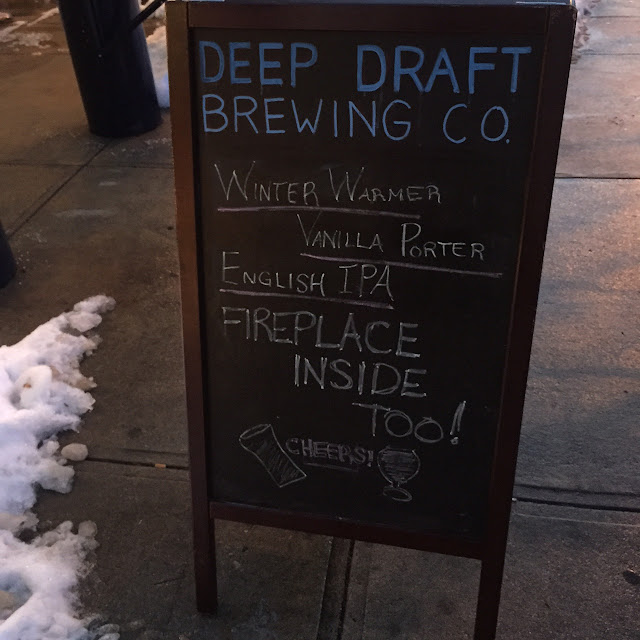 DEEP DRAFT
BREWING CO.
WINTER WARMER
VANILLA PORTER
ENGLISH IPA
FIREPLACE
INSIDE
TOO!
CHEERS!